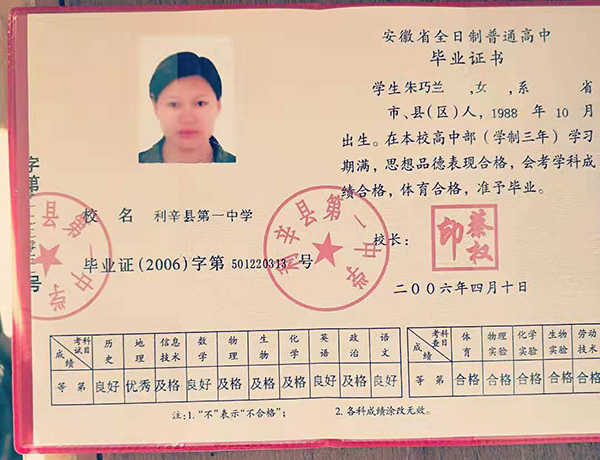 安徽省全日制普通高中
毕业证书
学生朱巧兰 ,女 ,系 省
市、县(区)人,1988 年 10 月
出生。在本校高中部(学制三年)学习
期满,思想品德表现合格,会考学科成
绩合格,体育合格,准予毕业。
校 名 利辛县第一中学
校长:
毕业证(2006)字第 501220313 号
二〇〇六年四月十日
利辛县第一中学
考试科目 历史 地理 信息技术 数学 物理 生物 化学 英语 政治 语文
成绩 等第 良好 优秀 及格 良好 及格 及格 及格 良好 及格 良好
考查科目 体育 物理实验 化学实验 生物实验 劳动技术
成绩 等第 合格 合格 合格 合格 合格
注:1.“不”表示“不合格”; 2.各科成绩涂改无效。
字第
号
第一中学